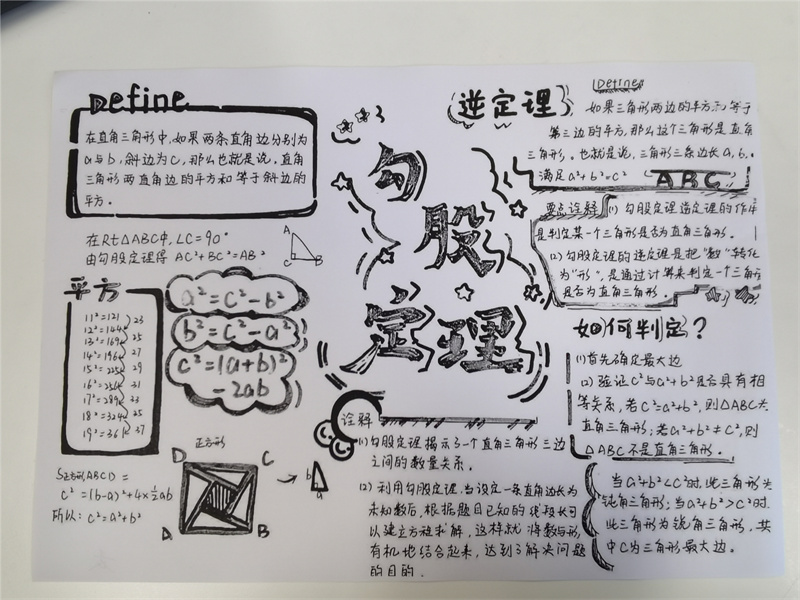 Define
在直角三角形中,如果两条直角边分别为
a与b,斜边为c,那么也就是说,直角
三角形两直角边的平方和等于斜边的
平方.
在Rt△ABC中,∠C=90°
由勾股定理得 AC²+BC²=AB²
A
C
B
平方
11²=121
12²=144
13²=169
14²=196
15²=225
16²=256
17²=289
18²=324
19²=361
23
25
27
29
31
33
25
37
a²=c²-b²
b²=c²-a²
c²=(a+b)²
-2ab
正方形
D
C
A
B
b
a
S正方形ABCD=
c²=(b-a)²+4×½ab
所以:c²=a²+b²
勾
股
定理
诠释
(1)勾股定理揭示了一个直角三角形三边
之间的数量关系.
(2)利用勾股定理,当设定一条直角边长为
未知数后,根据题目已知的线段长可
以建立方程求解,这样就将数与形
有机地结合起来,达到了解决问题
的目的.
逆定理
Define
如果三角形两边的平方和等于
第三边的平方,那么这个三角形是直角
三角形.也就是说,三角形三条边长a,b,
满足a²+b²=c²
ABC
要点诠释
(1)勾股定理逆定理的作
是判定某一个三角形是否为直角三角形.
(2)勾股定理的逆定理是把"数"转化
为"形",是通过计算来判定一个三角
是否为直角三角形.
如何判定?
(1)首先确定最大边
(2)验证c²与a²+b²是否具有相
等关系,若c²=a²+b²,则△ABC为
直角三角形;若a²+b²≠c²,则
△ABC不是直角三角形.
当a²+b²<c²时,此三角形为
钝角三角形;当a²+b²>c²时
此三角形为锐角三角形,其
中C为三角形最大边。